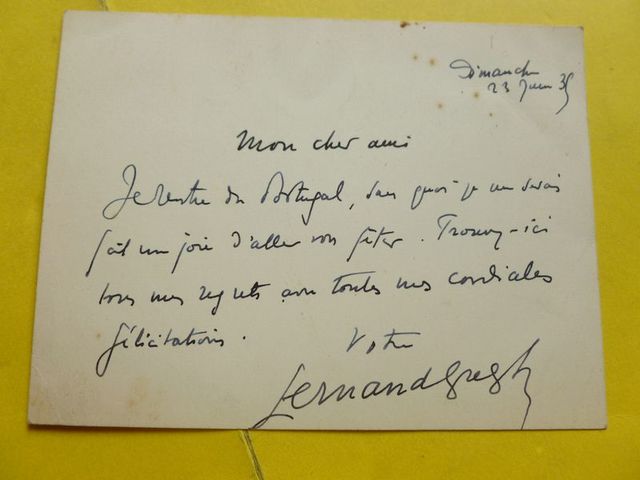 Dimanche
23 Juin 35
Mon cher ami
Je rentre du Portugal, sans quoi je me serais
fait une joie d'aller vous fêter. Trouvez-ici
tous mes regrets avec toutes mes cordiales
félicitations.
Votre
Fernand Gregh